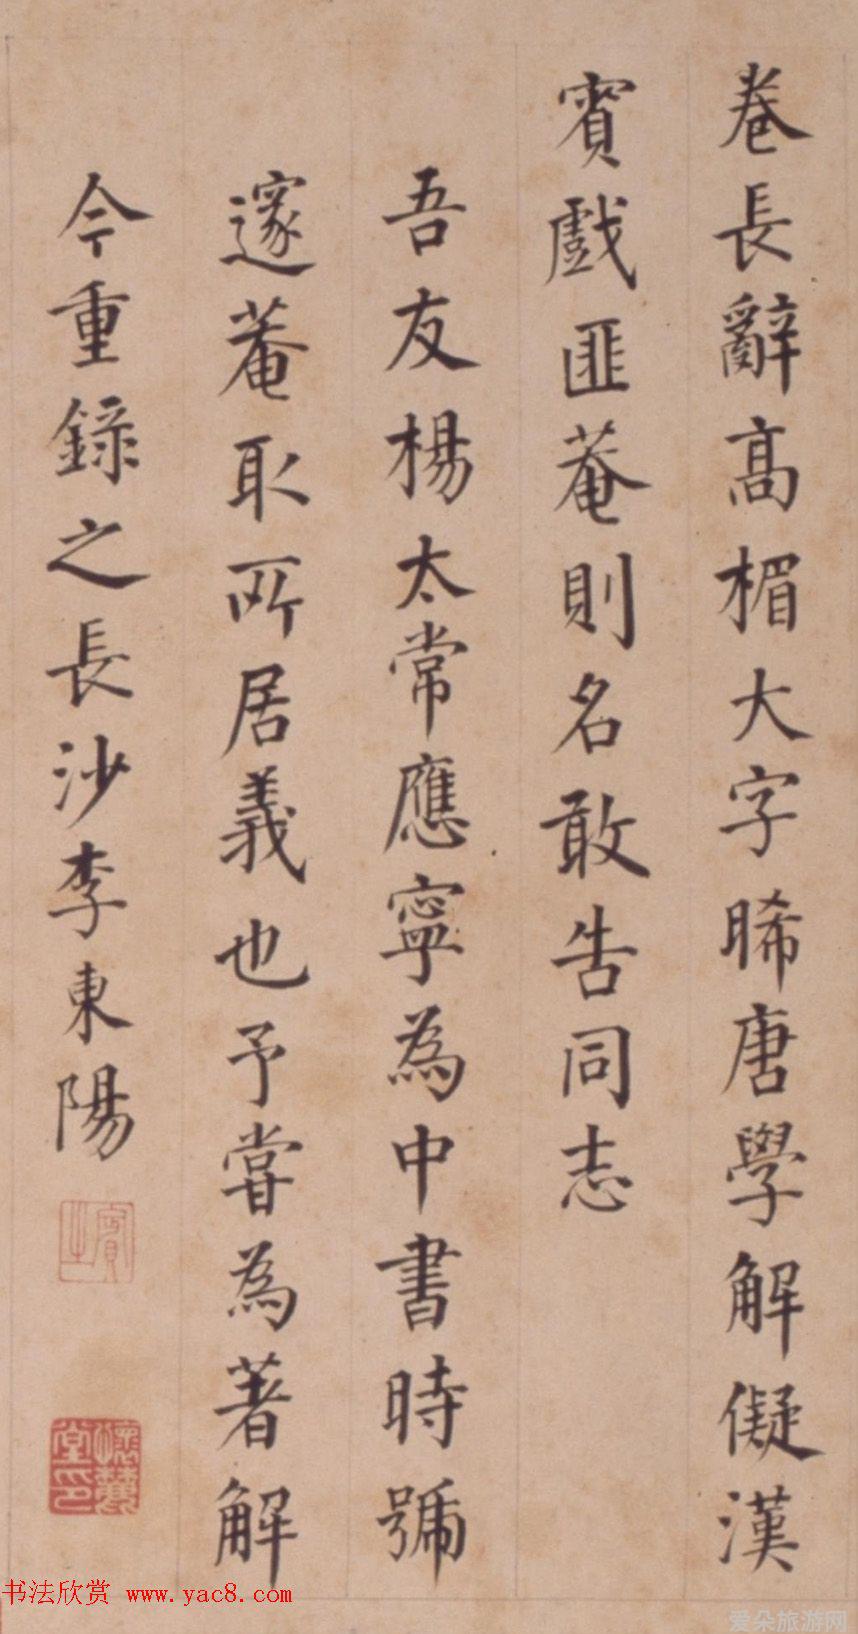 卷長辭高楣大字晞唐學解儗漢
賓戲匪菴則名敢告同志
吾友楊太常應寧為中書時號
邃菴取所居義也予嘗為著解
今重錄之長沙李東陽
賓之
懷麓堂印
书法欣赏 www.yac8.com
爱朵旅游网